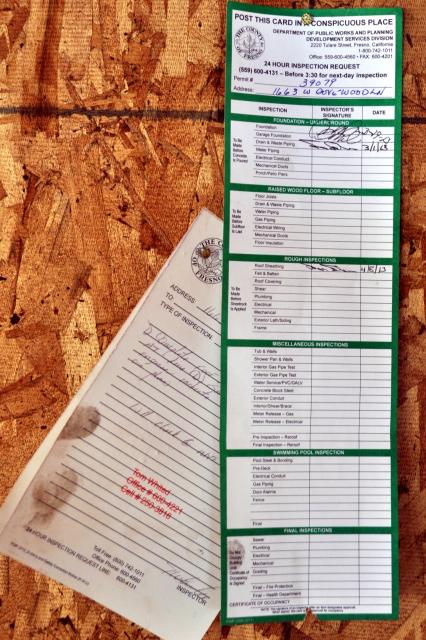 POST THIS CARD IN A CONSPICUOUS PLACE
DEPARTMENT OF PUBLIC WORKS AND PLANNING
DEVELOPMENT SERVICES DIVISION
2220 Tulare Street, Fresno, California
1-800-742-1011
Office: 559-600-4560 • FAX: 600-4201
24 HOUR INSPECTION REQUEST
(559) 600-4131 – Before 3:30 for next-day inspection
Permit #
Address: 1663 W
INSPECTION INSPECTOR'S SIGNATURE DATE
FOUNDATION – UNDERGROUND
To Be Made Before Concrete is Poured
Foundation
Garage Foundation
Drain & Waste Piping
Water Piping 3/1/13
Electrical Conduit
Mechanical Ducts
Porch/Patio Piers
RAISED WOOD FLOOR – SUBFLOOR
To Be Made Before Subfloor is Laid
Floor Joists
Drain & Waste Piping
Water Piping
Gas Piping
Electrical Wiring
Mechanical Ducts
Floor Insulation
ROUGH INSPECTIONS
To Be Made Before Sheetrock is Applied
Roof Sheathing 4/8/13
Felt & Batten
Roof Covering
Shear
Plumbing
Electrical
Mechanical
Exterior Lath/Siding
Frame
MISCELLANEOUS INSPECTIONS
Tub & Walls
Shower Pan & Walls
Interior Gas Pipe Test
Exterior Gas Pipe Test
Water Service/PVC/GALV
Concrete Block Steel
Exterior Conduit
Interior/Shear/Brace
Meter Release – Gas
Meter Release – Electrical
Pre Inspection – Reroof
Final Inspection – Reroof
SWIMMING POOL INSPECTION
Pool Steel & Bonding
Pre-Deck
Electrical Conduit
Gas Piping
Door Alarms
Fence
Final
FINAL INSPECTIONS
Do Not Occupy Building Until Certificate of Occupancy is Signed
Sewer
Plumbing
Electrical
Mechanical
Grading
Final – Fire Protection
Final – Health Department
CERTIFICATE OF OCCUPANCY
ADDRESS:
TO
TYPE OF INSPECTION
Tom Whited
Office # 600-4221
Cell # 250-3818
INSPECTOR
Toll Free (800) 742-1011
Office Phone: 600-4560
24 HOUR INSPECTION REQUEST LINE: 600-4131